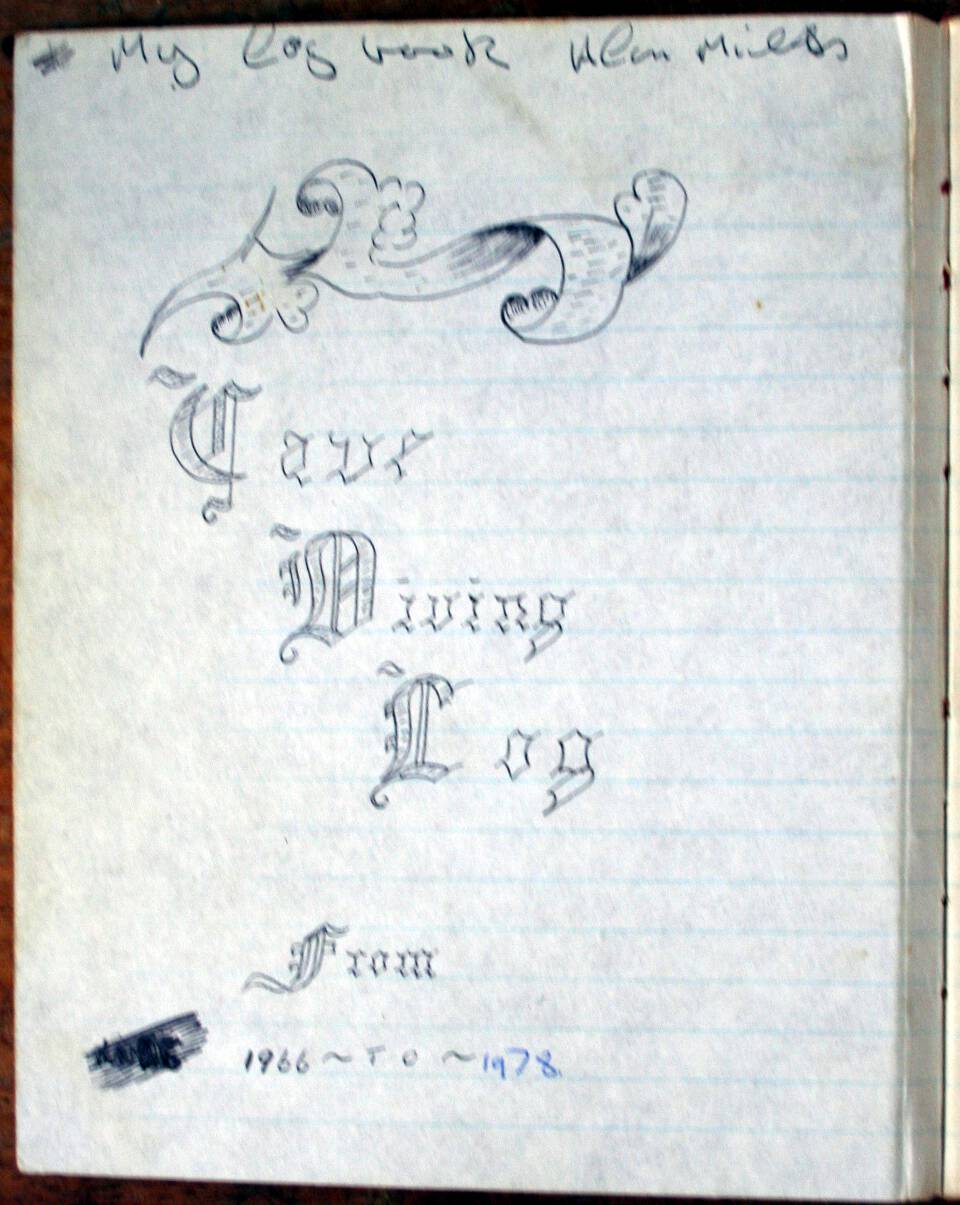 My Log book Alan Mills
Cave
Diving
Log
From
1966 ~ TO ~ 1978.